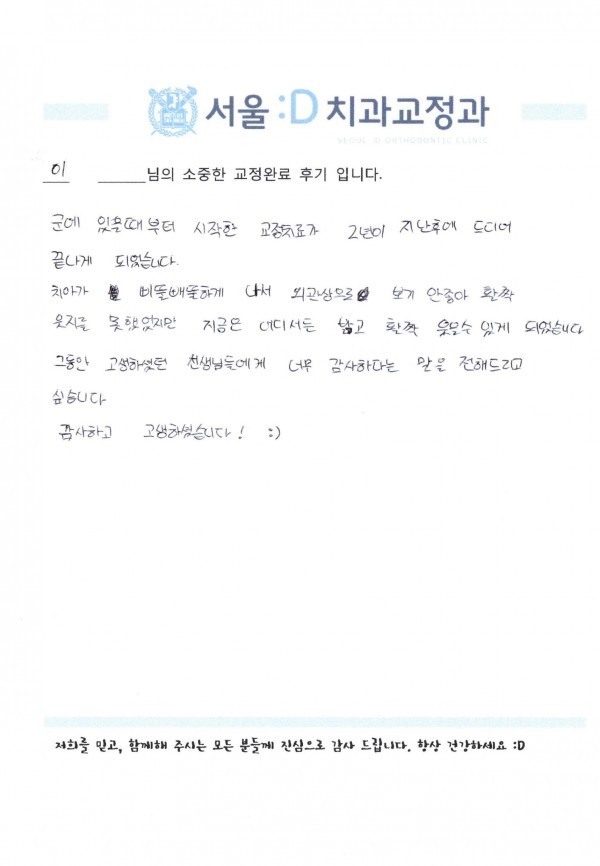 서울 :D 치과교정과
SEOUL :D ORTHODONTIC CLINIC
이 ______님의 소중한 교정완료 후기 입니다.
군에 있을때부터 시작한 교정치료가 2년이 지난후에 드디어
끝나게 되었습니다.
치아가 삐뚤빼뚤하게 나서 외관상으로 보기 안좋아 활짝
웃지를 못했었지만 지금은 어디서든 밝고 활짝 웃을수 있게 되었습니다
그동안 고생하셨던 선생님들에게 너무 감사하다는 말을 전해드리고
싶습니다
감사하고 고생하셨습니다! :)
저희를 믿고, 함께해 주시는 모든 분들께 진심으로 감사 드립니다. 항상 건강하세요 :D